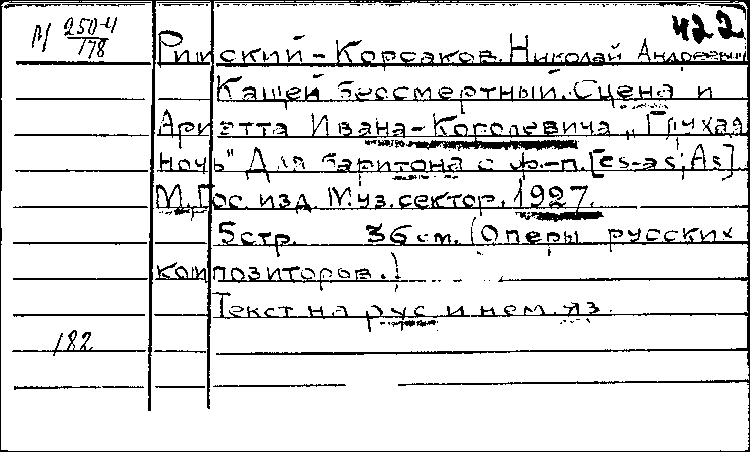 422
М 250-4/178
Римский-Корсаков. Николай Андреевич
Кащей бессмертный. Сцена и
Ариэтта Ивана-Королевича „Глухая
ночь" Для баритона с ф.-п. [es-as; As]
М. Гос. изд. Муз. сектор. 1927.
5 стр. 36 см. (Оперы русских
композиторов.)
Текст на рус и нем. яз.
182